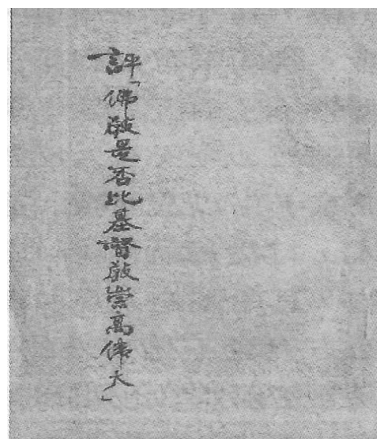 評「佛教是否比基督教崇高偉大」